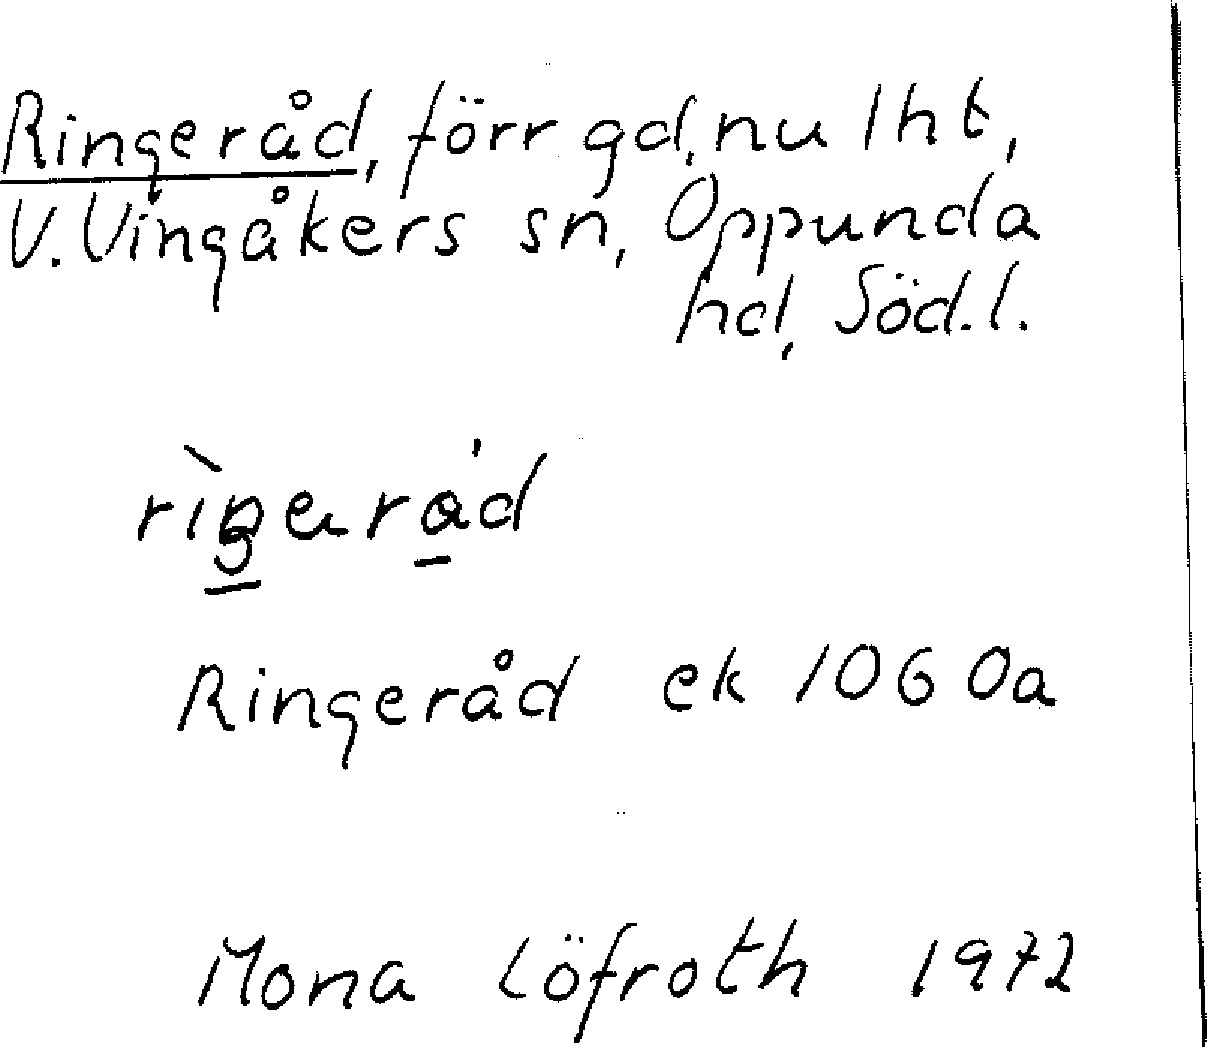 Ringeråd, förr gd, nu lht,
V. Vingåkers sn, Oppunda
hd, Söd.l.
Ringeråd ek 1060a
Mona Löfroth 1972